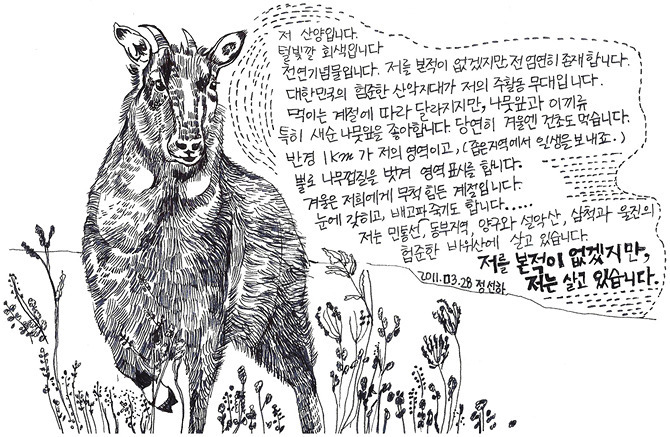 저 산양입니다.
털빛깔 회색입니다
천연기념물입니다. 저를 본적이 없겠지만 전 엄연히 존재합니다.
대한민국의 험준한 산악지대가 저의 주활동 무대입니다.
먹이는 계절에 따라 달라지지만, 나뭇잎과 이끼류
특히 새순 나뭇잎을 좋아합니다. 당연히 겨울엔 건초도 먹습니다.
반경 1km 가 저의 영역이고, (좁은지역에서 일생을 보내죠.)
뿔로 나무껍질을 벗겨 영역 표시를 합니다.
겨울은 저희에게 무척 힘든 계절입니다.
눈에 갇히고, 배고파 죽기도 합니다.....
저는 민통선, 동부지역, 양구와 설악산, 삼척과 울진의
험준한 바위산에 살고 있습니다.
저를 본적이 없겠지만,
저는 살고 있습니다.
2011.03.28 정선하